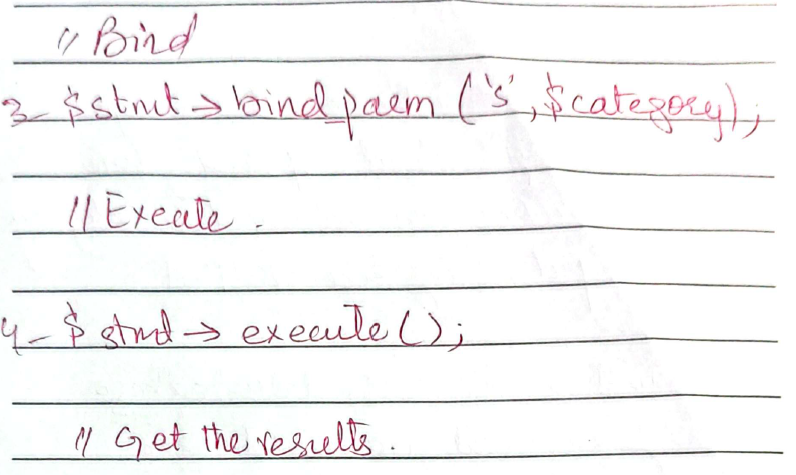 // Bind
3- $stmt → bind_paem ('s', $category);
// Exeate.
4- $ stmt → execute();
// Get the results.